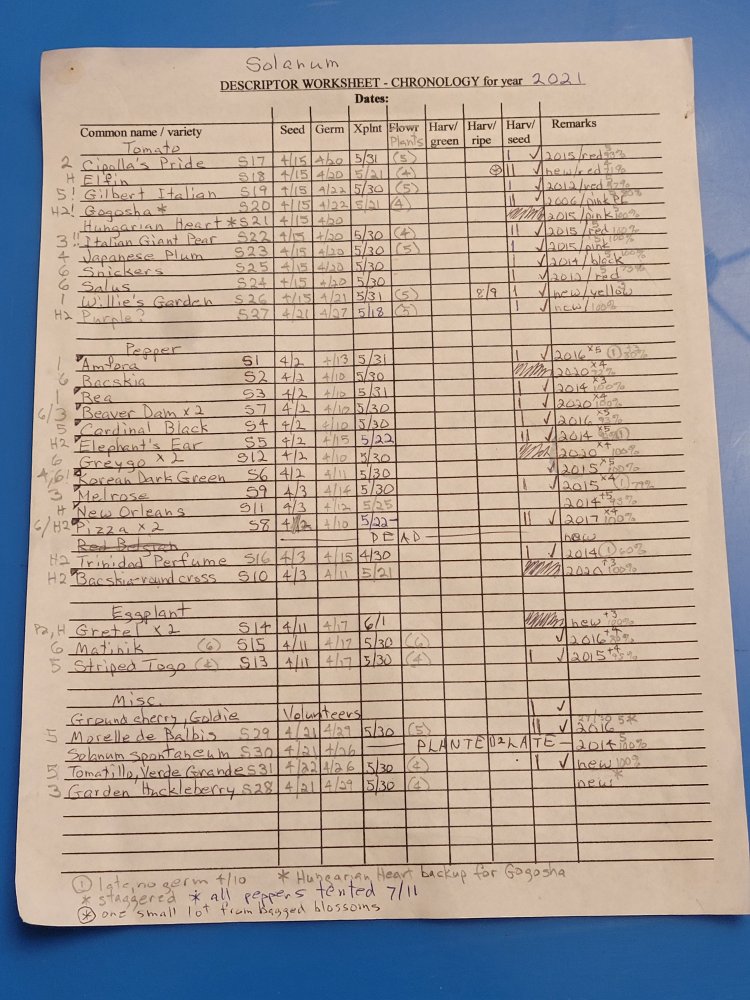 Solanum
DESCRIPTOR WORKSHEET - CHRONOLOGY for year 2021
Dates:
Common name / variety Seed Germ Xplnt Flowr Plants Harv/green Harv/ripe Harv/seed Remarks
Tomato
2 Cipolla's Pride S17 4/15 4/20 5/31 (5) I ✓ 2015/red
H Elfin S18 4/15 4/20 5/21 (4) ⊛ II ✓ new/red
5! Gilbert Italian S19 4/15 4/22 5/30 (5) I ✓ 2012/red
H2! Gogosha* S20 4/15 4/22 5/21 (4) II ✓ 2006/pink
Hungarian Heart * S21 4/15 4/20 2015/pink 100%
3!! Italian Giant Pear S22 4/15 4/20 5/30 (4) II ✓ 2015/red 100%
4 Japanese Plum S23 4/15 4/20 5/30 (5) I ✓ 2015/pink 100%
6 Snickers S25 4/15 4/20 5/30 I ✓ 2014/black 100%
6 Salus S24 4/15 4/20 5/30 I ✓ 2012/red
1 Willie's Garden S26 4/15 4/21 5/31 (5) 8/9 I ✓ new/yellow
H2 Purple? S27 4/21 4/27 5/18 (5) I ✓ new/100%
Pepper
1 Amfora S1 4/2 4/13 5/31 I ✓ 2016 x5 ①
6 Bacskia S2 4/2 4/10 5/30 2020 x4
1 Bea S3 4/2 4/10 5/31 I ✓ 2014 x3 100%
6/3 Beaver Dam x2 S7 4/2 4/10 5/30 I ✓ 2020 x4 100%
5 Cardinal Black S4 4/2 4/10 5/30 I ✓ 2016 x5
H2 Elephant's Ear S5 4/2 4/15 5/22 II ✓ 2014 x5
6 Greygo x2 S12 4/2 4/10 5/30 2020 x4 100%
4,6! Korean Dark Green S6 4/2 4/11 5/30 ✓ 2015 x5 100%
3 Melrose S9 4/3 4/14 5/30 I ✓ 2015 x4 ① 79%
H New Orleans S11 4/3 4/12 5/25 2014 +5 93%
6/H2 Pizza x2 S8 4/2 4/10 5/22 II ✓ 2017 x4 100%
Red Belgian DEAD new
H2 Trinidad Perfume S16 4/3 4/15 4/30 I ✓ 2014 ① 60%
H2 Bacskia-round cross S10 4/3 4/11 5/21 2020 +3 100%
Eggplant
P2, H Gretel x2 S14 4/11 4/17 6/1 new +3 100%
6 Matinik (6) S15 4/11 4/17 5/30 (6) ✓ 2016 +4
5 Striped Togo (4) S13 4/11 4/17 5/30 (4) I ✓ 2015 +4 95%
Misc.
Ground cherry, Goldie Volunteers I ✓
5 Morelle de Balbis S29 4/21 4/29 5/30 (5) II ✓ 2016
Solanum spontaneum S30 4/21 4/26 PLANTED 2 LATE 2014 100%
5 Tomatillo, Verde Grande S31 4/22 4/26 5/30 (4) I ✓ new 100%
3 Garden Huckleberry S28 4/21 4/29 5/30 (4) new*
① late, no germ 4/10 * Hungarian Heart backup for Gogosha
* staggered * all peppers tented 7/11
⊛ one small lot from bagged blossoms